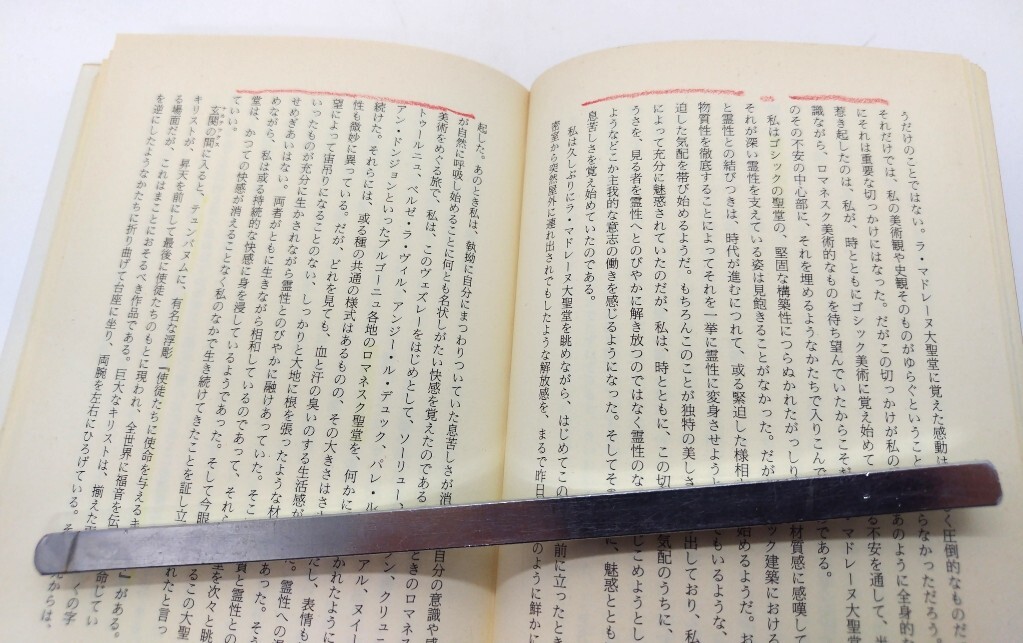 うだけのことではない。ラ・マドレーヌ大聖堂に覚えた感動は
く圧倒的なものだ
それだけでは、私の美術観や史観そのものがゆらぐということ
らなかっただろ
にそれは重要な切っかけにはなった。だがこの切っかけが私の
あのように全身的
惹き起したのは、私が、時とともにゴシック美術に覚え始めて
る不安を通して、
識ながら、ロマネスク美術的なものを待ち望んでいたからこそだ
マドレーヌ大聖
のその不安の中心部に、それを埋めるようなかたちで入りこんで
である。
私はゴシックの聖堂の、堅固な構築性につらぬかれたがっしり
材質感に感嘆して
それが深い霊性を支えている姿は見飽きることがなかった。だが
ック建築における
と霊性との結びつきは、時代が進むにつれて、或る緊迫した様相
ともいるような、
物質性を徹底することによってそれを一挙に霊性に変身させようと
始めるようだ。お
迫した気配を帯び始めるようだ。もちろんこのことが独特の美しさ
出しており、私
によって充分に魅惑されていたのだが、私は、時とともに、この切
気配のうちに、
うさを、見る者を霊性へとのびやかに解き放つのではなく霊性のな
じこめようとし
ようなどこか主我的な意志の働きを感じるようになった。そしてそ
に、魅惑ととも
息苦しさを覚え始めていたのである。
私は久しぶりにラ・マドレーヌ大聖堂を眺めながら、はじめてこの
前に立ったとき
密室から突然屋外に連れ出されでもしたような解放感を、まるで昨日
のように鮮かに
起した。あのとき私は、執拗に自分にまつわりついていた息苦しさが消
自分の意識や感
が自然に呼吸し始めることに何とも名状しがたい快感を覚えたのである
ときのロマネス
美術をめぐる旅で、私は、このヴェズレーをはじめとして、ソーリュー、
トゥールニュ、ベルゼ・ラ・ヴィル、アンジー・ル・デュック、パレ・ル
アル、ヌイー
アン・ドンジョンといったブルゴーニュ各地のロマネスク聖堂を、何かに
かれたように
続けた。それらには、或る種の共通の様式はあるものの、その大きさはさ
だし、表情も
性も微妙に異っている。だが、どれを見ても、血と汗の臭いのする生活感が
望によって宙吊りになることのない、しっかりと大地に根を張ったような材
いったものが充分に生かされながら霊性とのびやかに融けあっていた。そこ
あった。そ
せめぎあいはない。両者がともに生きながら相和しているのであって、それら
めながら、私は或る持続的な快感に身を浸しているようであった。そして今眼
堂は、かつての快感が消えることなく私のなかで生き続けてきたことを証し立
れたと言っ
ていい。
玄関の間に入ると、テュンパヌムに、有名な浮彫『使徒たちに使命を与えるキ
』がある。
キリストが、昇天を前にして最後に使徒たちのもとに現われ、全世界に福音を伝
命じてい
る場面だが、これはまことにおそるべき作品である。巨大なキリストは、揃えた両
くの字
を逆にしたようなかたちに折り曲げて台座に坐り、両腕を左右にひろげている。そ
からは、